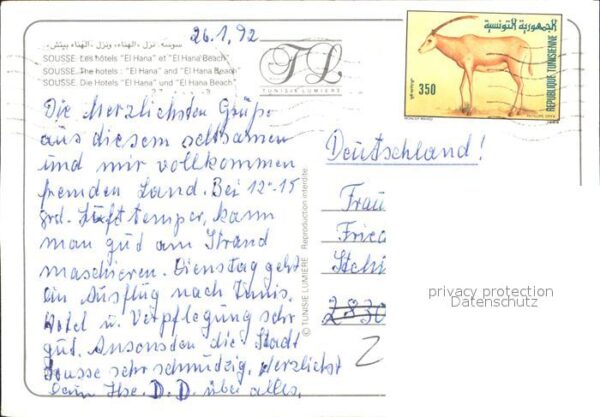 26.1.92
سوسة . نزل «الهناء» ونزل «الهناء بيتش»
SOUSSE. Les hôtels "El Hana" et "El Hana Beach"
SOUSSE. The hotels : "El Hana" and "El Hana Beach
SOUSSE. Die Hotels "El Hana" und "El Hana Beach"
TL
TUNISIE LUMIERE
الجمهورية التونسية
350
REPUBLIQUE TUNISIENNE
Die herzlichsten Grüße
aus diesem seltsamen
und mir vollkommen
fremden Land. Bei 12-15
grd. Lufttemper, kann
man gut am Strand
maschieren. Dienstag geht
ein Ausflug nach Tunis.
Hotel u. Verpflegung sehr
gut. Ansonsten die Stadt
Sousse sehr schmutzig. Herzlichst
Dein Ilse. D. D. über alles.
© TUNISIE LUMIERE Reproduction interdite
Deutschland!
Frau
Fried
Stchi
2830
privacy protection
Datenschutz